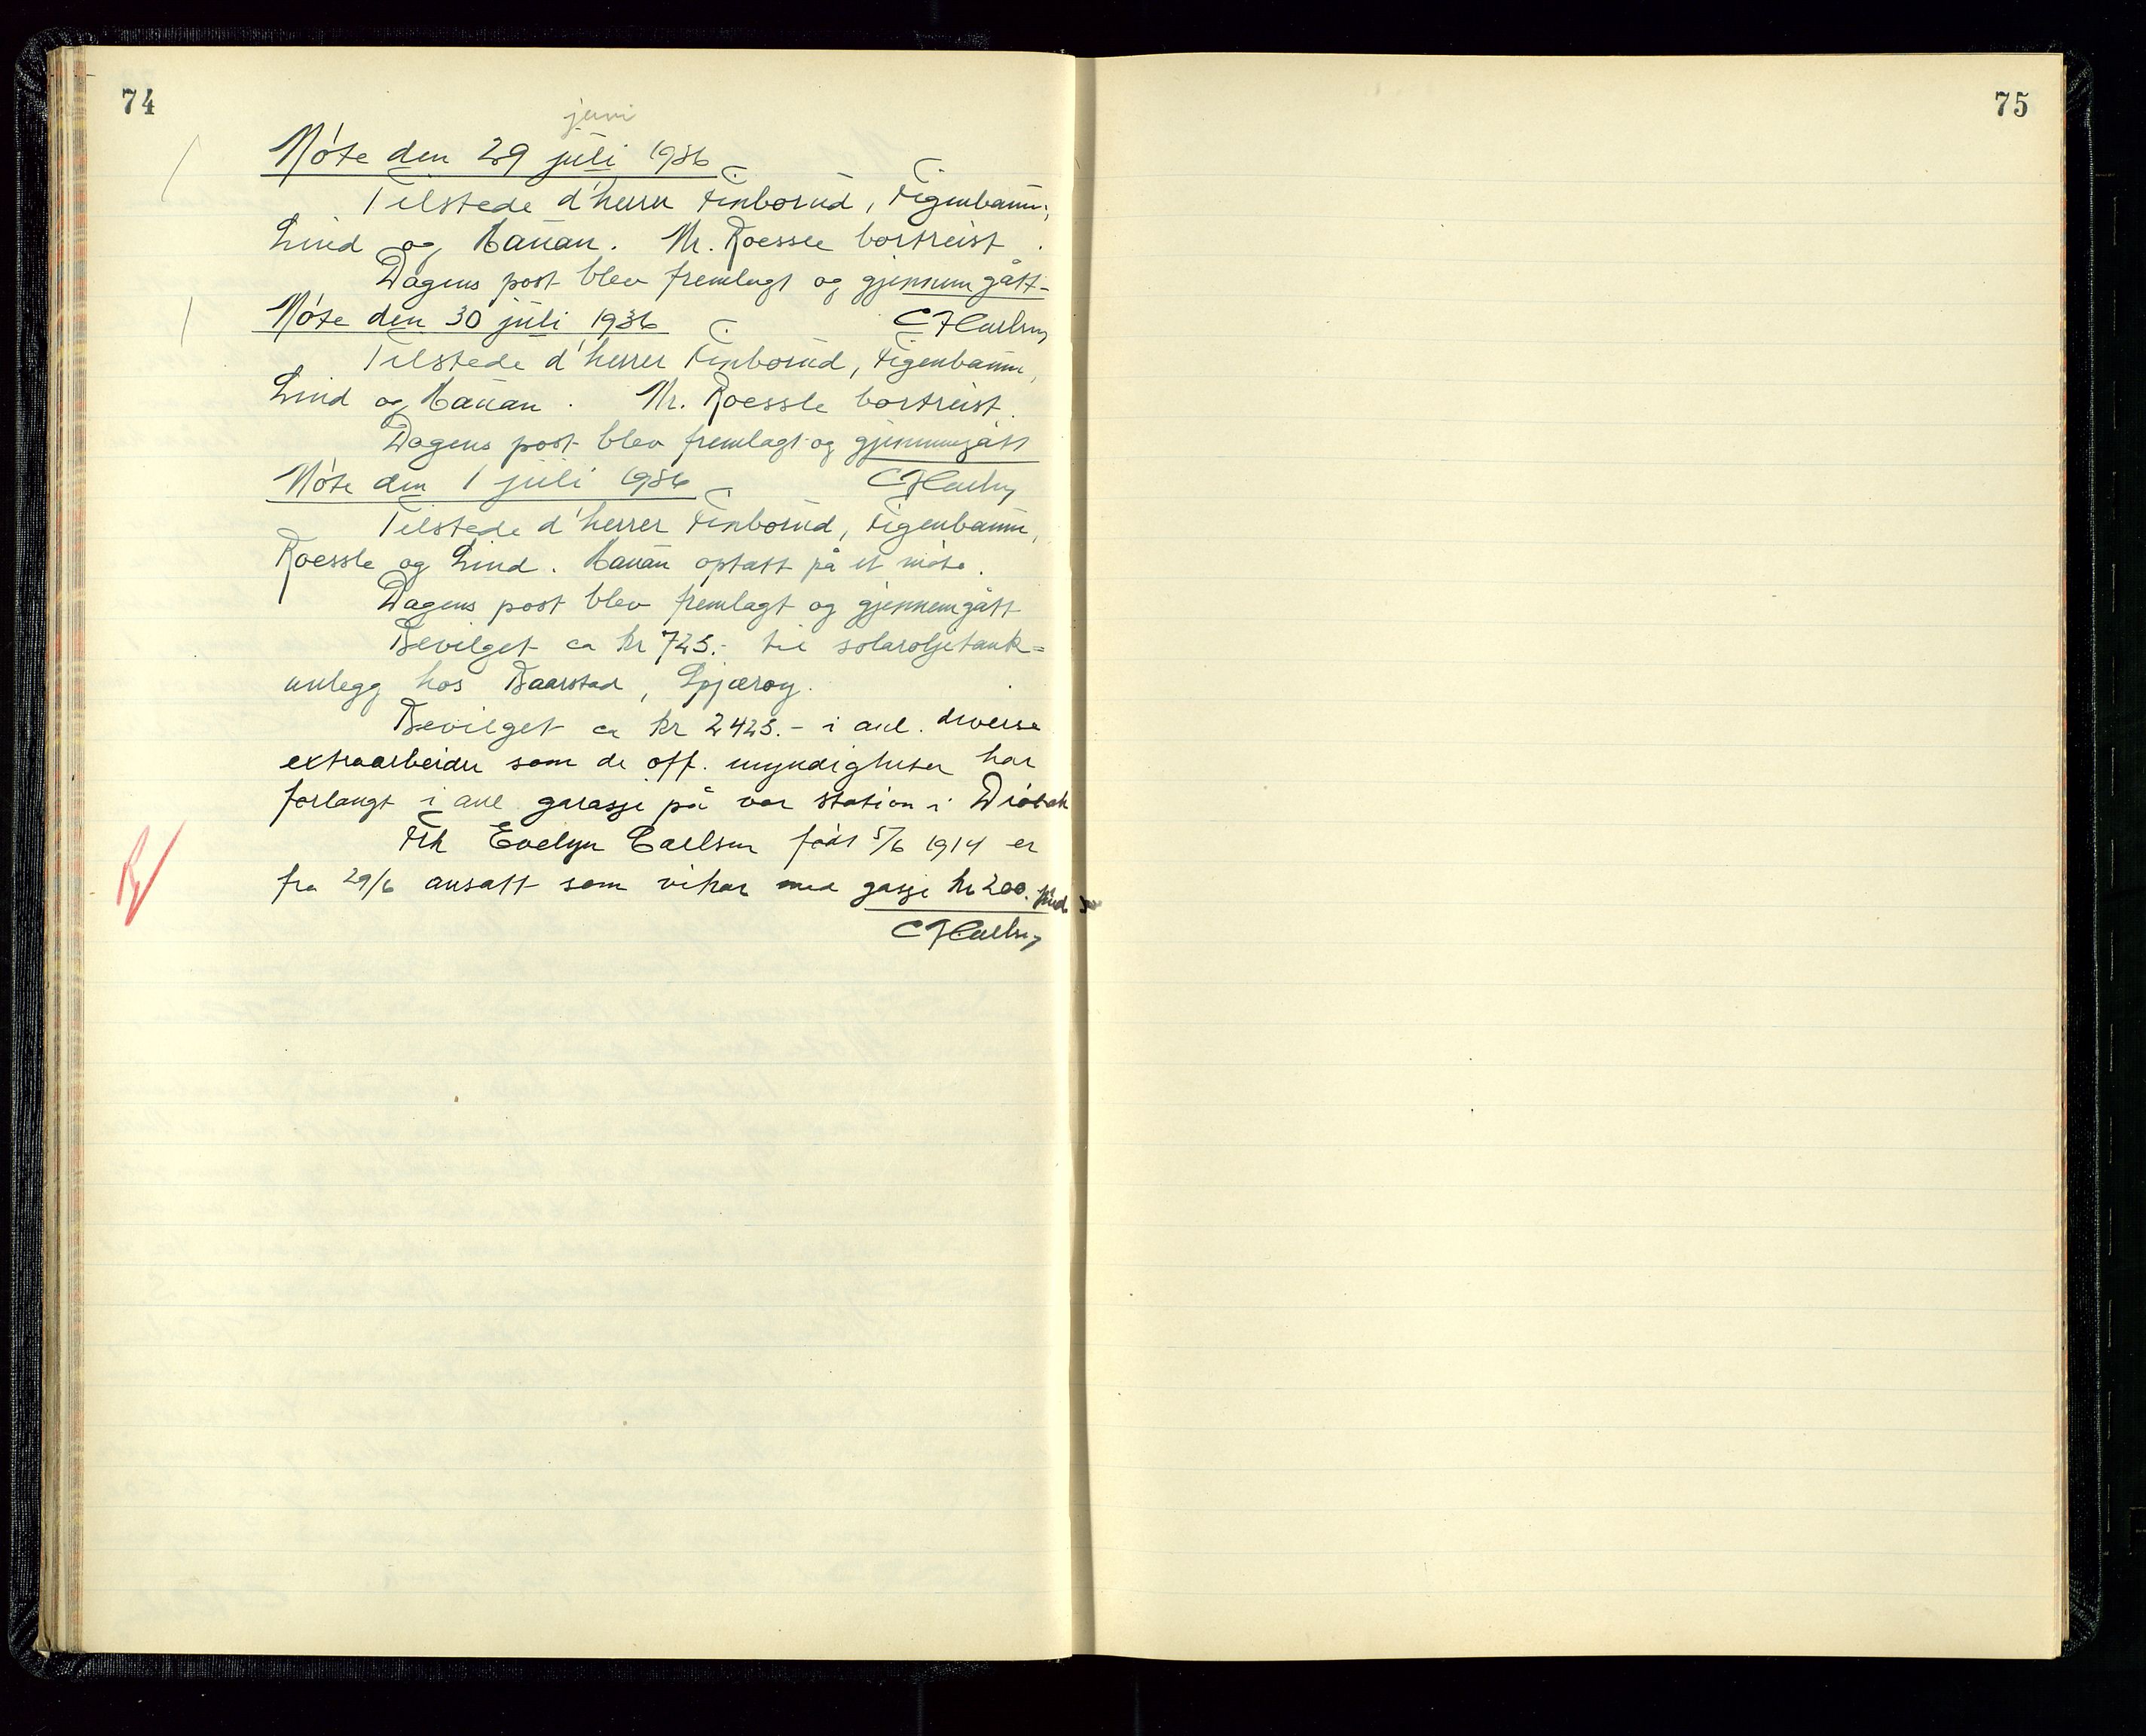 74
juni
Møte den 29 juli 1936
Tilstede d'herrer Finborud, Figenbaum,
Lind og Hauan. Mr. Roessle bortreist.
Dagens post blev fremlagt og gjennumgått-
CFCarlsen
Møte den 30 juli 1936
Tilstede d'herrer Finborud, Figenbaum,
Lind og Hauan. Mr. Roessle bortreist.
Dagens post blev fremlagt og gjennumgått
CFCarlsen
Møte den 1 juli 1936
Tilstede d'herrer Finborud, Figenbaum,
Roessle og Lind. Hauan optatt på et møte.
Dagens post blev fremlagt og gjennemgått
Bevilget ca kr 725.- til solaroljetank=
anlegg hos Baarstad, Spjærøy.
Bevilget ca kr 2425.- i anl. diverse
extraarbeider som de off. myndigheter har
forlangt i anl garasje på vor station i Drøbak
Frk Evelyn Carlsen født 5/6 1914 er
fra 29/6 ansatt som vikar med gasje kr 200.
CFCarlsen
75